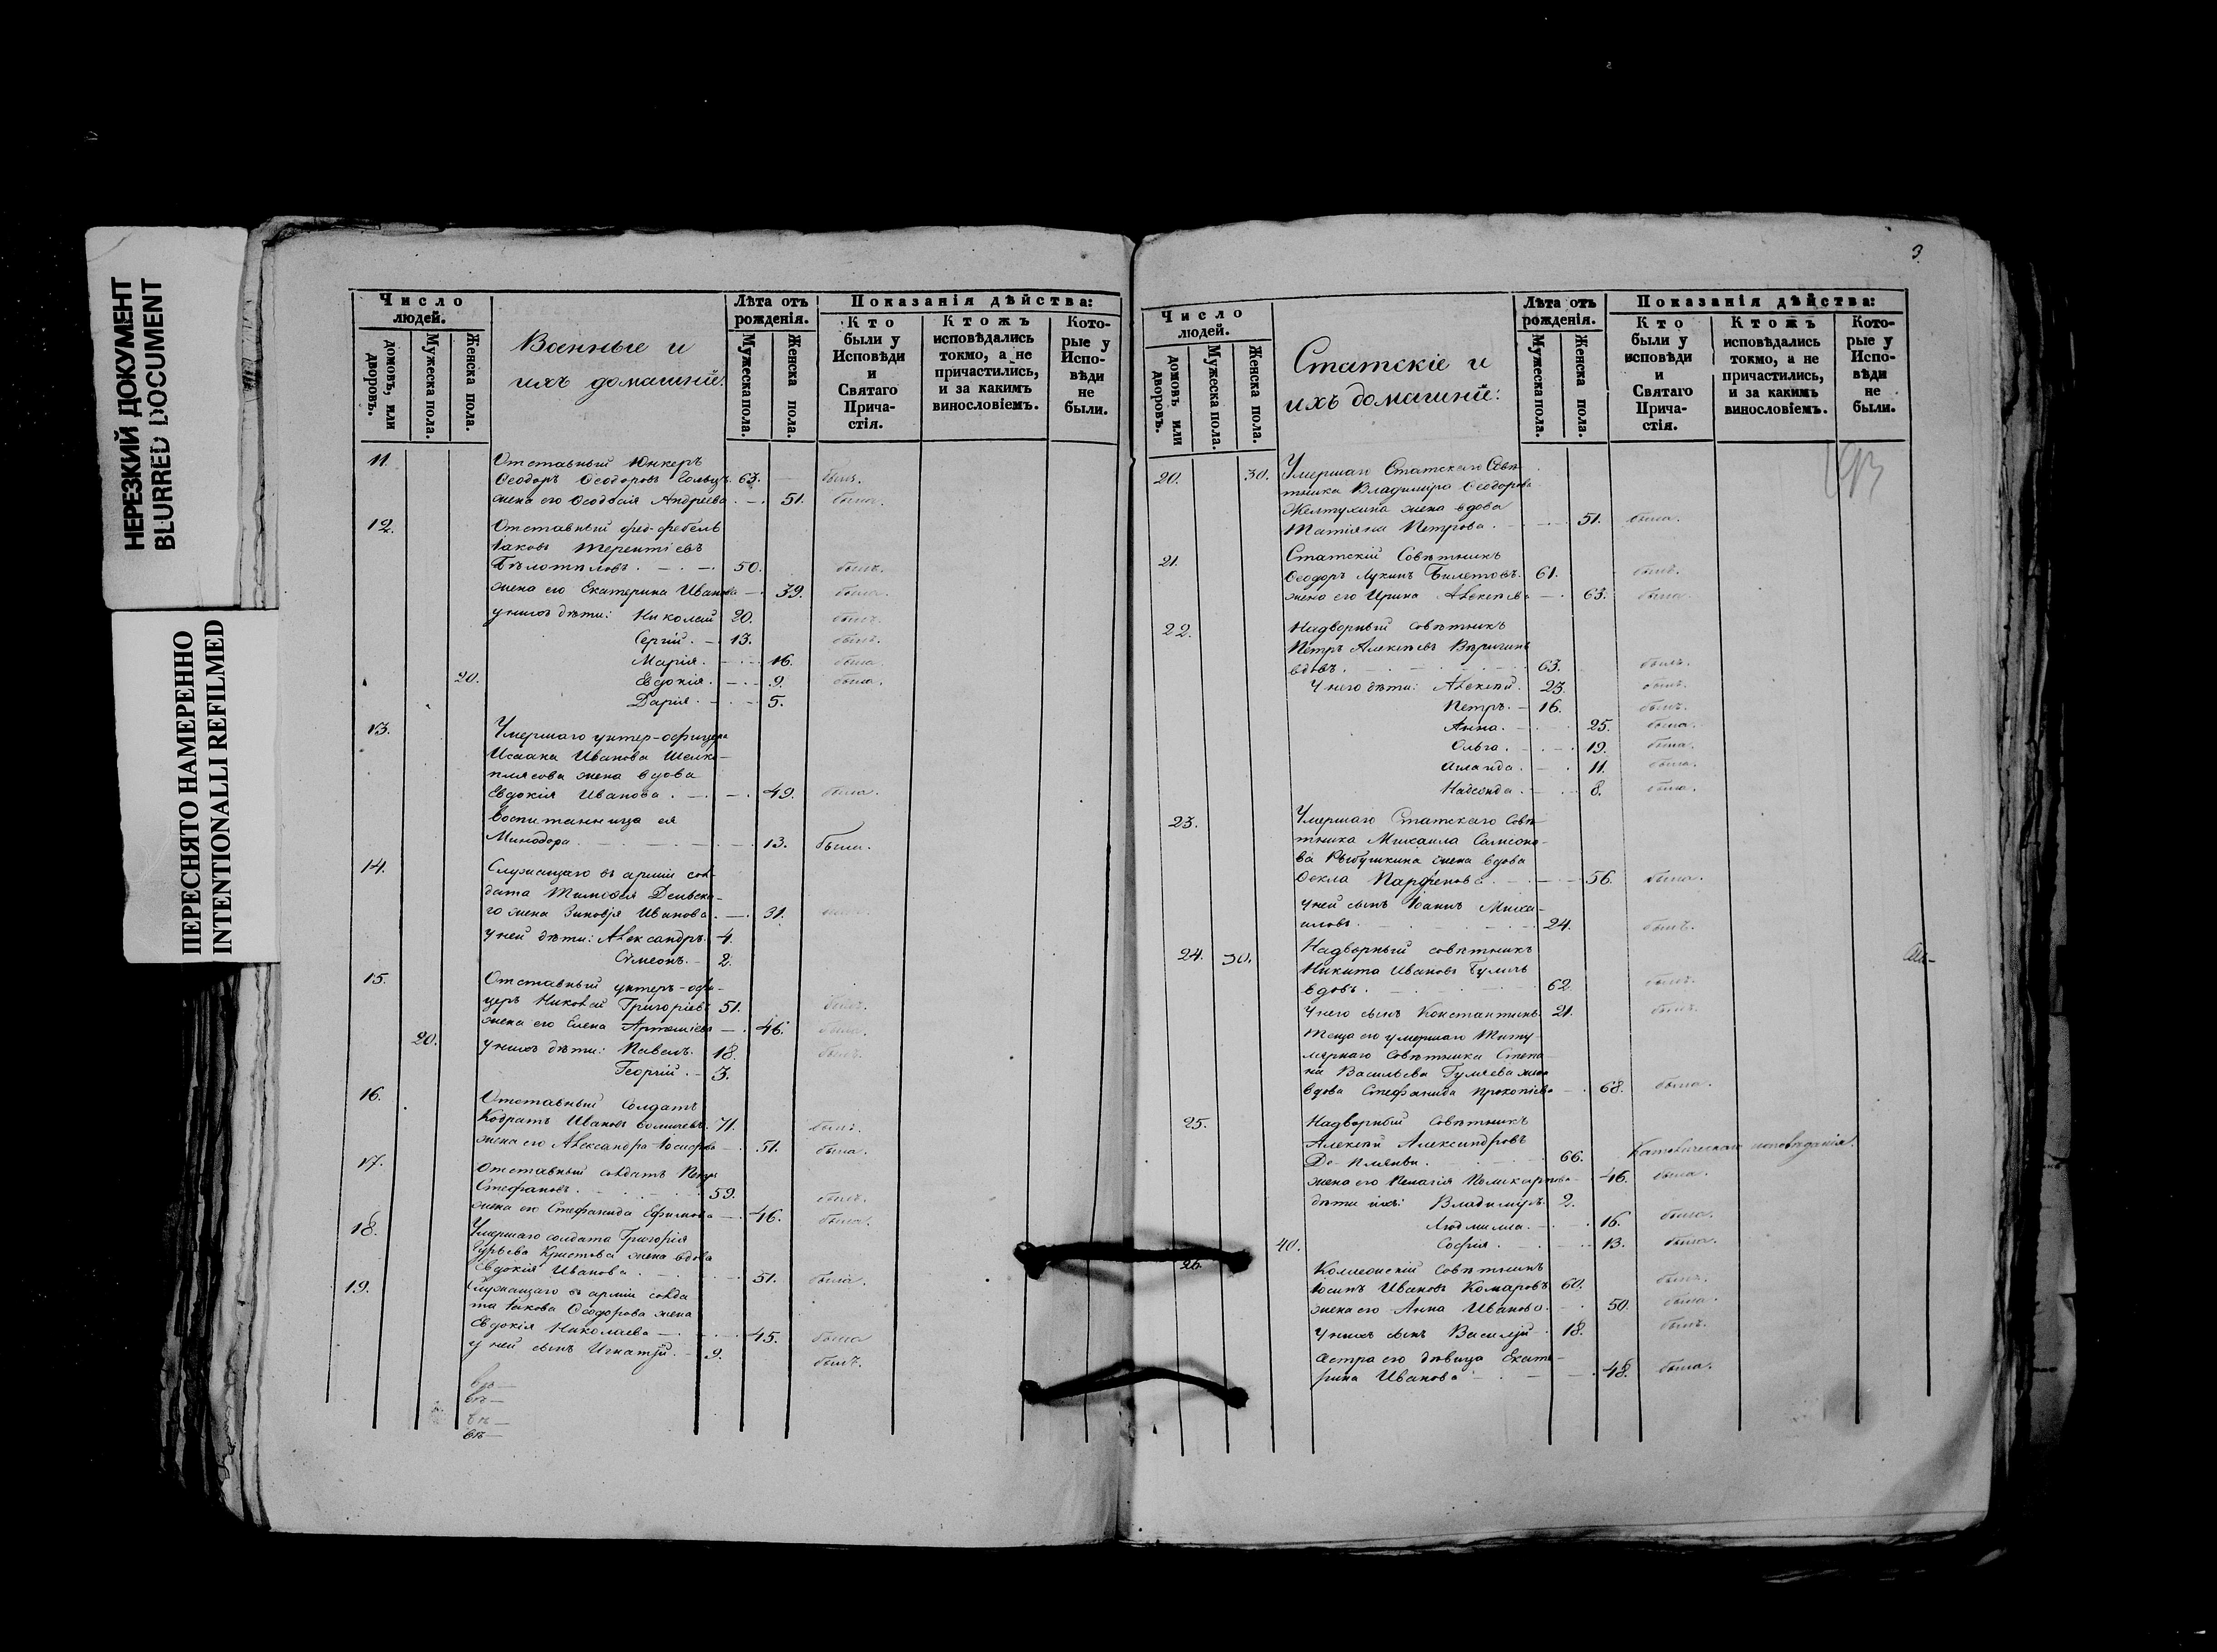 НЕРЕЗКИЙ ДОКУМЕНТ
BLURRED DOCUMENT
ПЕРЕСНЯТО НАМЕРЕННО
INTENTIONALLI REFILMED
Число людей.
домовъ, или дворовъ.
Мужеска пола.
Женска пола.
Военные и
ихъ домашніи:
Лѣта отъ рожденія.
Мужеска пола.
Женска пола.
Показанія дѣйства:
Кто были у Исповѣди и Святаго Причастія.
Ктожъ исповѣдались токмо, а не причастились, и за какимъ винословіемъ.
Которые у Исповѣди не были.
11. Отставный Юнкеръ
Ѳеодоръ Ѳеодоровъ 63. былъ.
жена его Ѳеодосія Андреева 51. была.
12. Отставный фельдфебель
Іаковъ Терентіевъ
50. былъ.
жена его Екатерина Иванова 39. была.
у нихъ дѣти: Николай 20. былъ.
Сергій. 13. былъ.
Марія. 16. была.
20. Евдокія. 9. была.
Дарія. 5.
13. Умершаго унтер-офицера
Исаака Иванова
жена вдова
Евдокія Иванова 49. была.
воспитанница ея
Минодора 13. была.
14. Служащаго въ арміи сол-
дата Тимофея
го жена Зиновія Иванова. 31.
у ней дѣти: Александръ. 4.
Сѵмеонъ. 2.
15. Отставный унтеръ-офи-
церъ Николай Григоріевъ 51. былъ.
жена его Елена Артеміева 46. была.
20. у нихъ дѣти: Павелъ. 18. былъ.
Георгій. 3.
16. Отставный Солдатъ
Кодратъ Ивановъ 71. былъ.
жена его Александра 51. была.
17. Отставный солдатъ Петръ
Стефановъ. 59. былъ.
жена его Стефанида Ефимова 46. была.
18. Умершаго солдата Григорія
Гурьева жена вдова
Евдокія Иванова. 51. была.
19. Служащаго въ арміи солда
та Іакова Ѳеодорова жена
Евдокія Николаева 45. была
у ней сынъ Игнатій. 9. былъ.
3.
Число людей.
домовъ или дворовъ.
Мужеска пола.
Женска пола.
Статскіе и
ихъ домашніи:
Лѣта отъ рожденія.
Мужеска пола.
Женска пола.
Показанія дѣйства:
Кто были у исповѣди и Святаго Причастія.
Ктожъ исповѣдались токмо, а не причастились, и за какимъ винословіемъ.
Которые у Исповѣди не были.
20. 30. Умершаго Статскаго Совѣ
тника Владиміра Ѳеодорова
Желтухина жена вдова
Татіяна Петрова. 51. была.
21. Статскій Совѣтникъ
Ѳеодоръ Лукинъ 61. былъ.
жена его Ирина Алексѣева 63. была.
22. Надворный совѣтникъ
Петръ Алексѣевъ
вдовъ. 63. былъ.
У него дѣти: Алексѣй. 23. былъ.
Петръ. 16. былъ.
Анна. 25. была.
Ольга. 19. была.
11. была.
8. была.
23. Умершаго Статскаго Совѣ
тника Михаила Самсоно-
ва Рыбушкина жена вдова
Ѳекла Парфенова. 56. была.
у ней сынъ Іоаннъ Миха-
иловъ. 24. былъ.
24. 30. Надворный совѣтникъ
Никита Ивановъ
вдовъ. 62. былъ.
У него сынъ Константинъ 21. былъ.
Теща его умершаго Титу-
лярнаго Совѣтника Степа
на Васильева Гуляева жена
вдова Стефанида Прокопіева 68. была.
25. Надворный Совѣтникъ
Алексѣй Александровъ
66. Католическаго исповѣданія.
жена его Пелагія Поликарпова 46. была.
дѣти ихъ: Владиміръ. 2.
Людмила. 16. была.
40. Софія. 13. была.
26. Коллежскій Совѣтникъ
Іосипъ Ивановъ Комаровъ 60. былъ.
жена его Анна Иванова. 50. была.
у нихъ сынъ Василій 18. былъ.
сестра его дѣвица Екате-
рина Иванова 48. была.